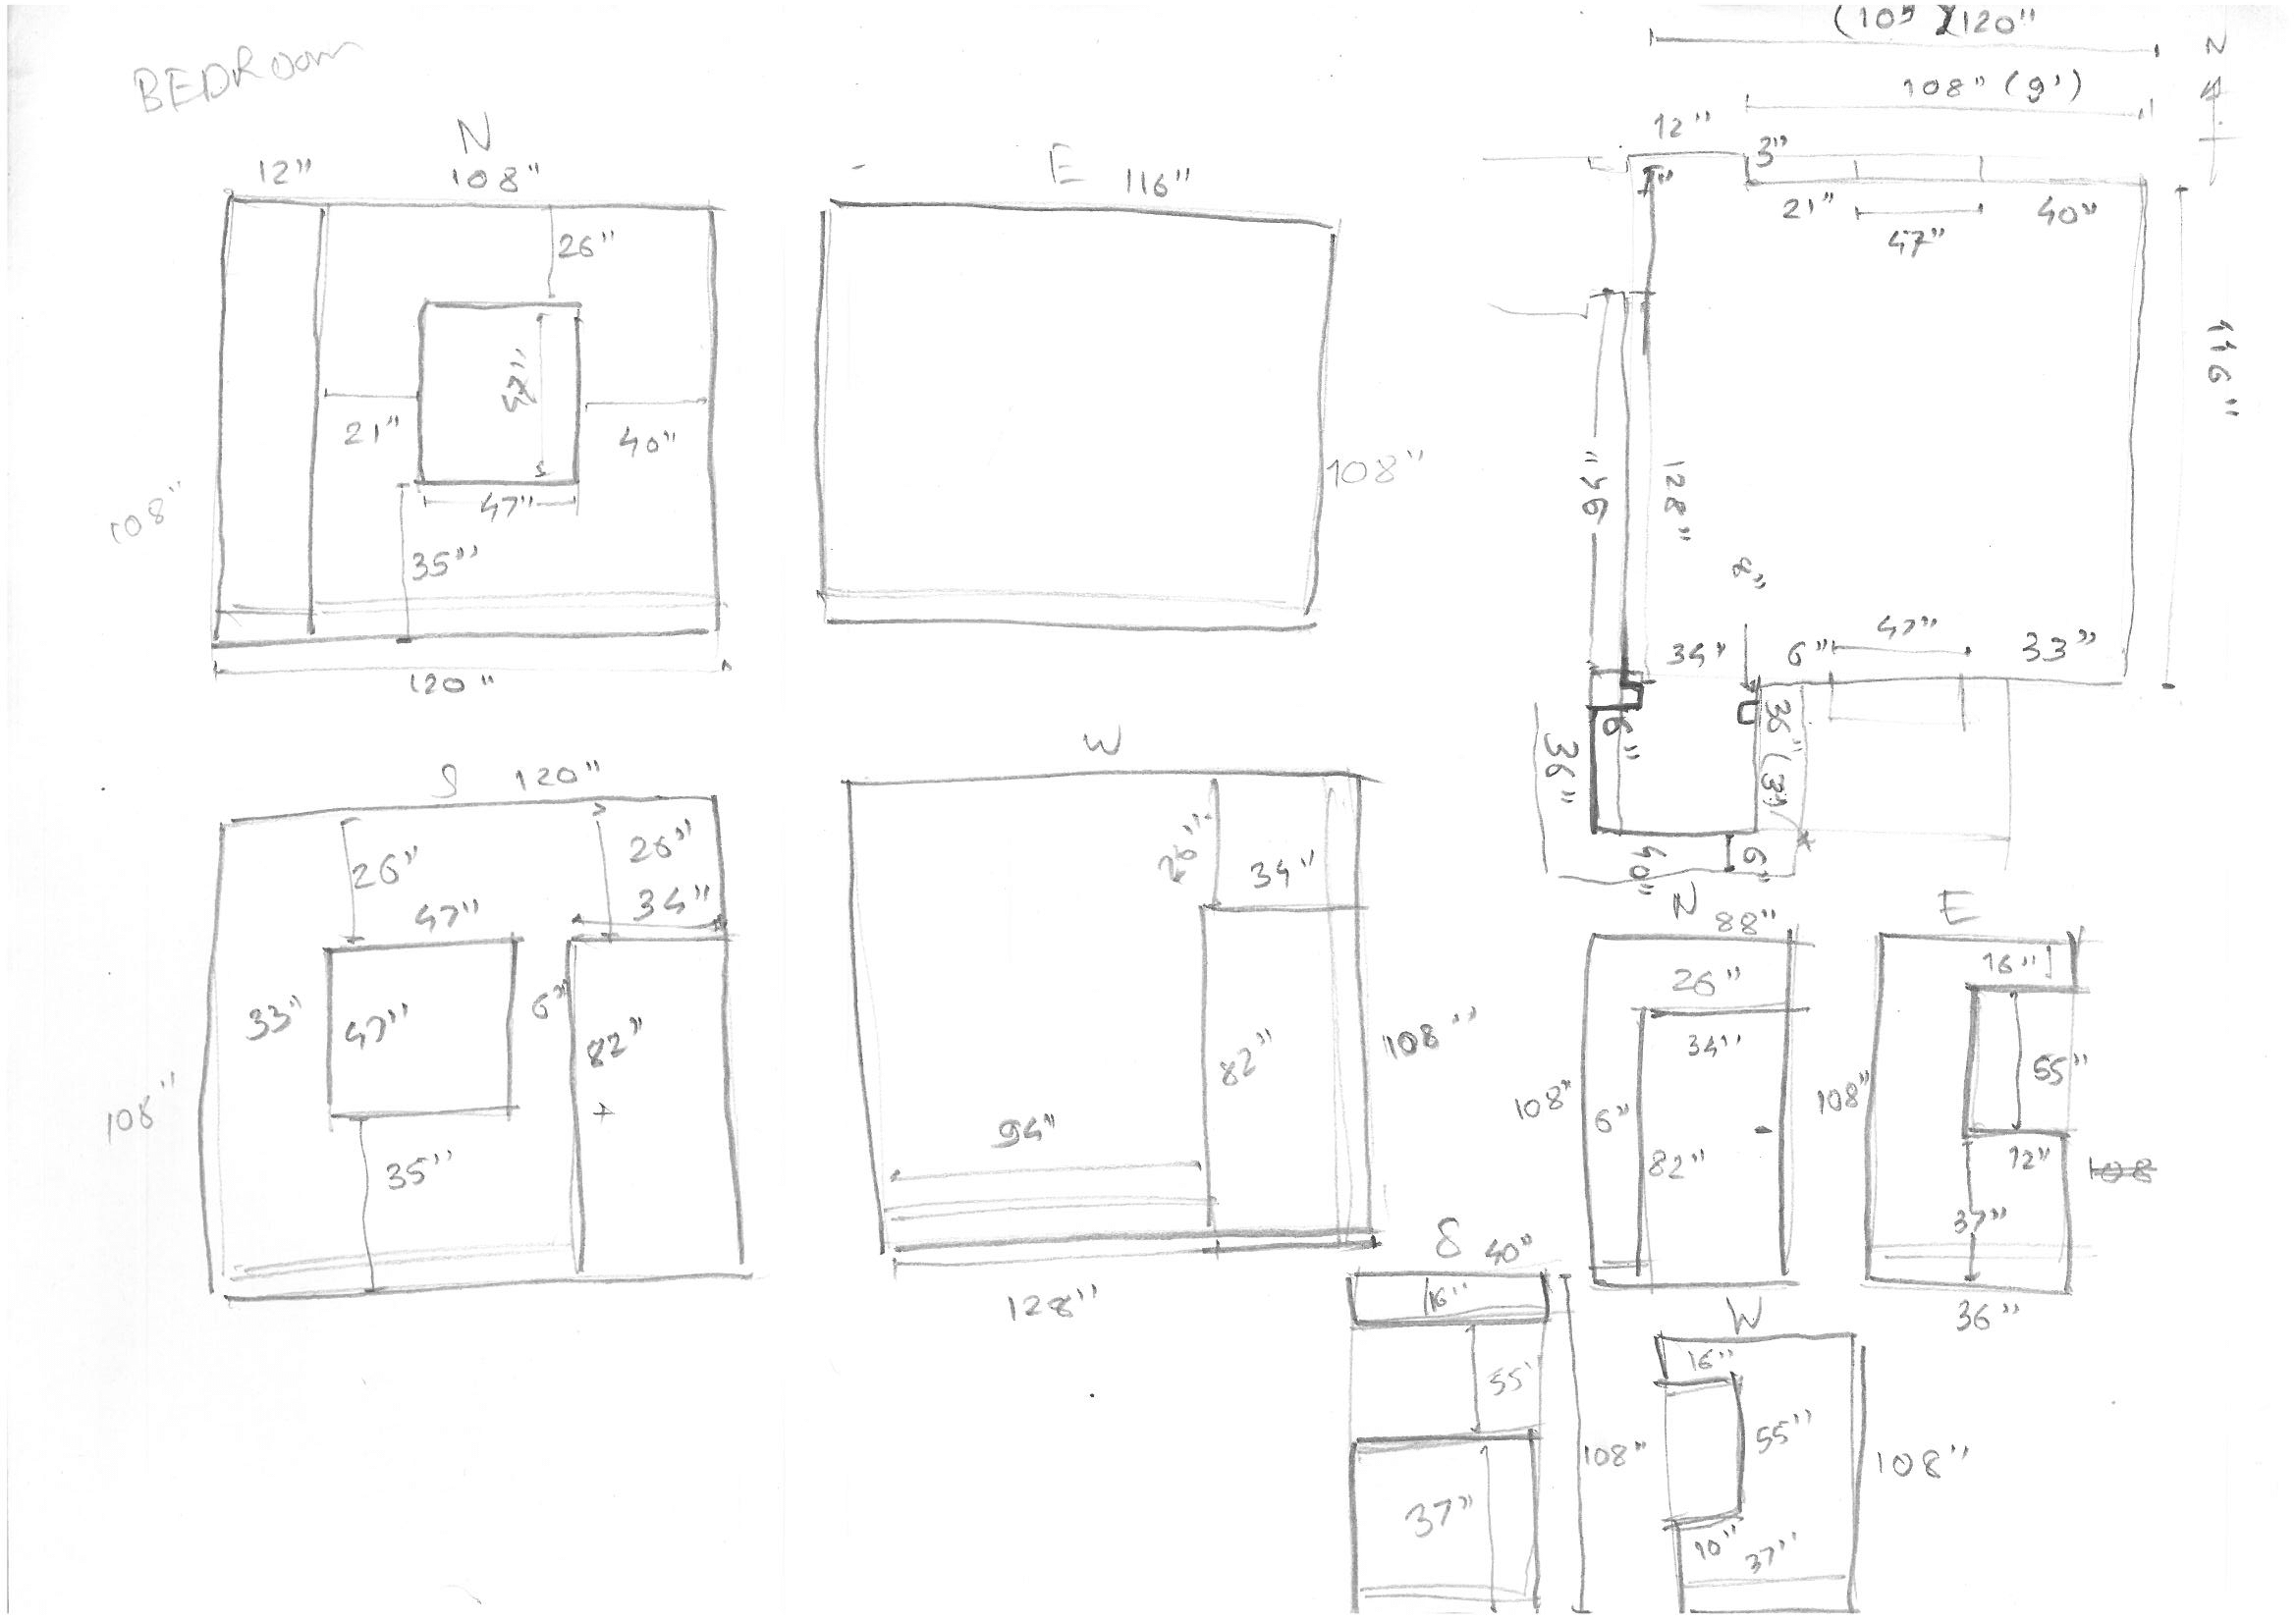 BEDROOM
N
12" 108"
26"
47"
21" 40"
47"
35"
108"
120"
E 116"
108"
120"
108" (9')
N
12" 3"
21" 40"
47"
116"
128"
34" 6" 47" 33"
6"
36"
36" (3')
40" 6"
S 120"
26" 26"
47" 34"
33" 47" 6" 82"
108"
35"
W
26" 34"
82" 108"
94"
128"
N 88"
26"
34"
108" 6"
82"
E
16"
55"
108"
12"
108
37"
36"
S 40"
16"
55"
108"
37"
W
16"
55"
108"
10" 37"